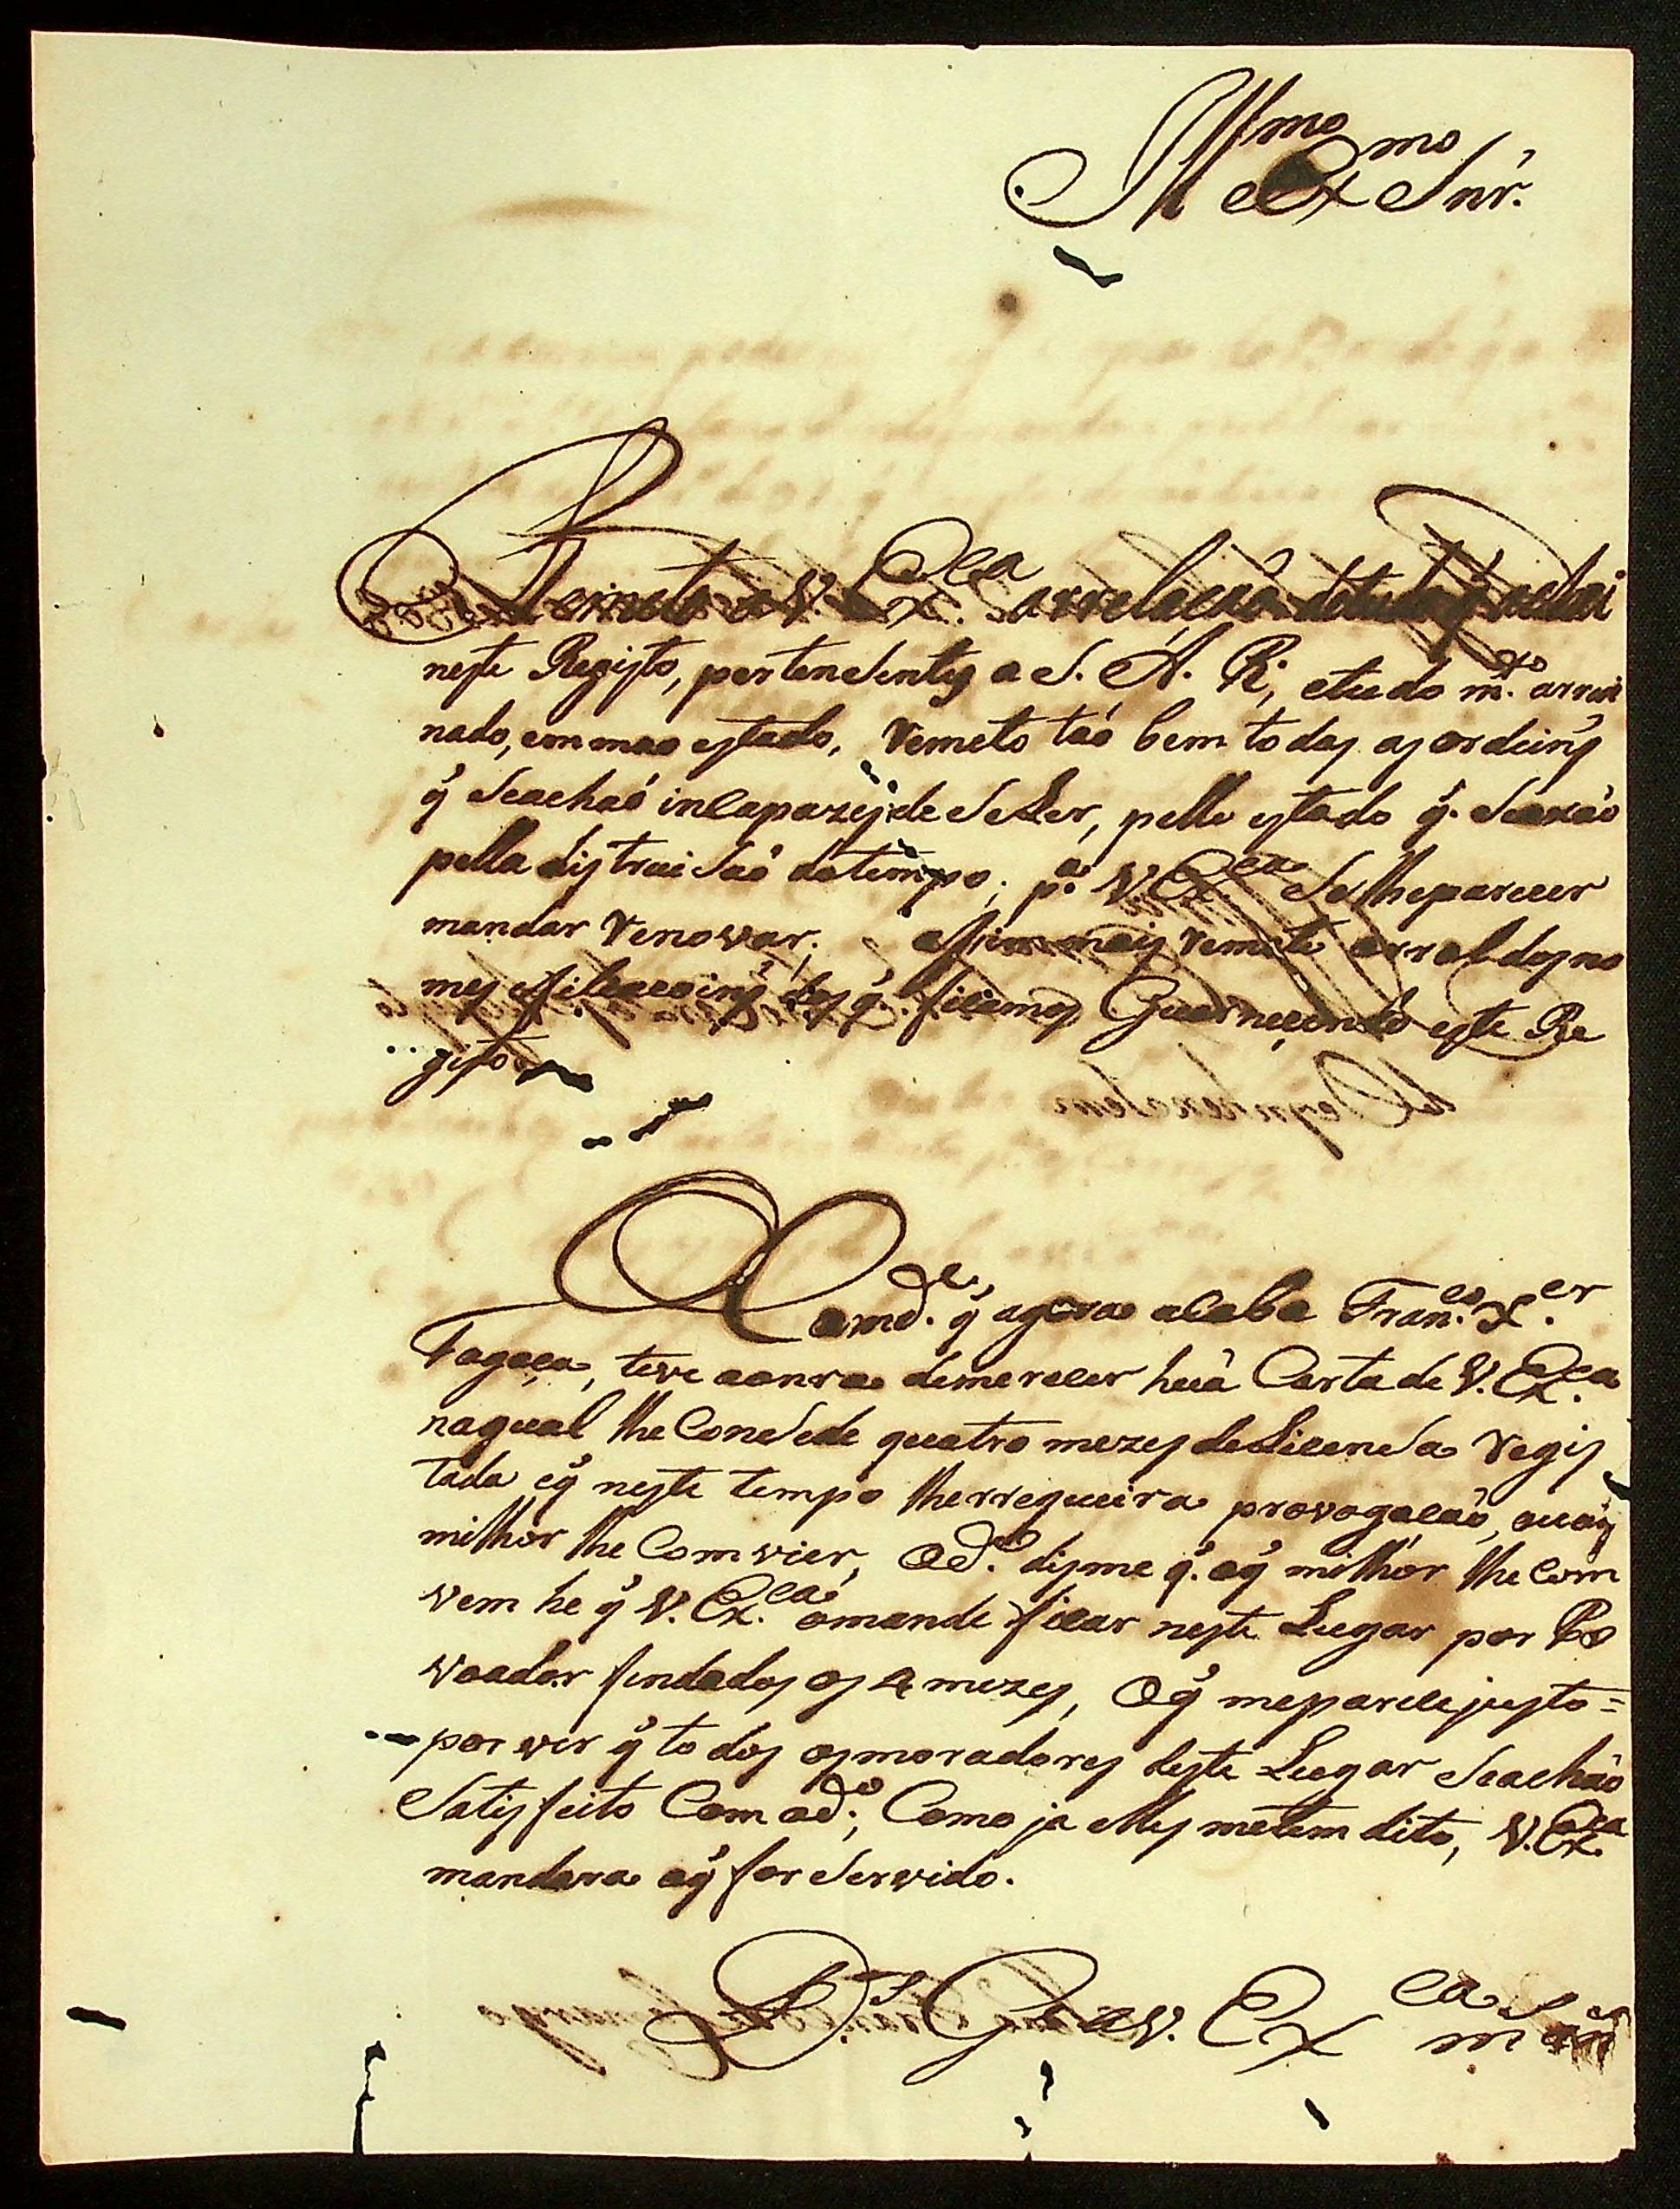 Ill.mo e Ex.mo Snr.
Remeto a V. Ex.ca arrelacaõ detudo q̃ achei
neste Registo, pertensentes a S. A. R., etudo m.to arrui
nado, em mao estado, Remeto taõ bem todas as ordeins
q̃ Seachaõ incapazes de Se Ler, pello estado q̃. Seaxaõ
pella distruisaõ dotempo; p.a V. Ex.ca Se lheparecer
mandar Renovar; assim mais Remeto arrol dos no
mes dos q̃. ficamos Guarnecendo este Re
gisto
O Comd.e q̃ agora acaba Fran.co X.er
Fogaça, teve aonra demerecer huã Carta de V. Ex.ca
naqual lhe ConsSede quatro mezes deLicenSa Regis
tada eq̃ neste tempo lherrequeira provogacaõ, ouoq̃
milhor lhe Comvier, Od.o disme q̃. oq̃ milhor lhe Com
vem he q̃ V. Ex.ca omande ficar neste Lugar por Po
voador findados os 4 mezes, Oq̃ meparece justo=
por ver q̃ todos osmoradores deste Lugar Seachaõ
Satisfeito Com od.o; Como ja elles metem dito, V. Ex.ca
mandara oq̃ for Servido.
D.s G.e a V. Ex.ca m.s an.s